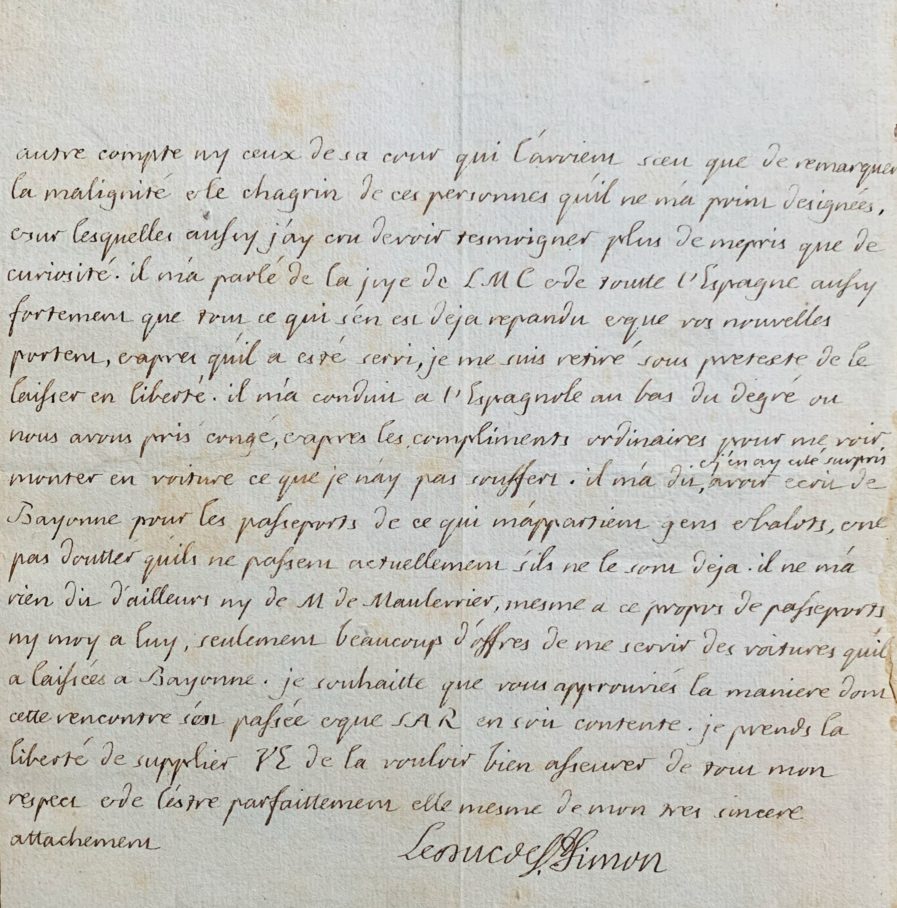 autre compte ny ceux de sa cour qui l'avoient sceu que de remarquer
la malignité & le chagrin de ces personnes qu'il ne m'a point designées,
& sur lesquelles aussy j'ay cru devoir tesmoigner plus de mepris que de
curiosité. il m'a parlé de la joye de LMC & de toutte l'Espagne aussy
fortement que tout ce qui s'en est deja repandu & que vos nouvelles
portent, & apres qu'il a esté servi, je me suis retiré sous pretexte de le
laisser en liberté. il m'a conduit a l'Espagnole au bas du dégré ou
nous avons pris congé, & apres les compliments ordinaires pour me voir
& j'en ay esté surpris
monter en voiture ce que je n'ay pas souffert. il m'a dit, avoir ecrit de
Bayonne pour les passeports de ce qui m'appartient gens & balots, & ne
pas doutter qu'ils ne passent actuellement s'ils ne le sont deja. il ne m'a
rien dit d'ailleurs ny de M de Maulevrier, mesme a ce propos de passeports
ny moy a luy, seulement beaucoup d'offres de me servir des voitures qu'il
a laissées a Bayonne. je souhaitte que vous approuviés la maniere dont
cette rencontre s'est passée & que SAR en soit contente. je prends la
liberté de supplier VE de la vouloir bien asseurer de tout mon
respect & de l'estre parfaittement elle mesme de mon tres sincere
attachement
Le duc de St Simon